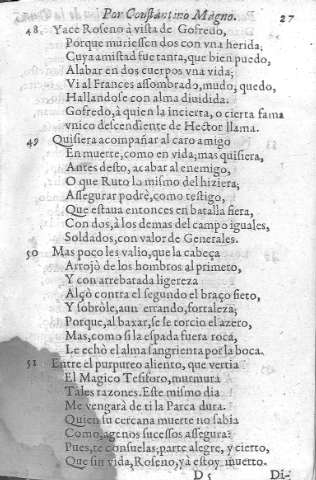 Por Constantino Magno. 27
48 Yace Roseno à vista de Gofredo,
Porque muriessen dos con vna herida;
Cuya amistad fue tanta, que bien puedo,
Alabar en dos cuerpos vna vida;
Vi al Frances assombrado, mudo, quedo,
Hallandose con alma diuidida.
Gofredo, à quien la incierta, o cierta fama
vnico descendiente de Hector llama.
49 Quisiera acompañar al caro amigo
En muerte, como en vida; mas quisiera,
Antes desto, acabar al enemigo,
O que Ruto lo mismo del hiziera;
Assegurar podrè, como testigo,
Que estaua entonces en batalla fiera,
Con dos, à los demas del campo iguales,
Soldados, con valor de Generales.
50 Mas poco les valio, que la cabeça
Arrojò de los hombros al primero,
Y con arrebatada ligereza
Alçò contra el segundo el braço fiero,
Y sobròle, aun errando, fortaleza;
Porque, al baxar, se le torcio el azero,
Mas, como si la espada fuera roca,
Le echò el alma sangrienta por la boca.
51 Entre el purpureo aliento, que vertia
El Magico Tesiforo, murmura
Tales razones. Este mismo dia
Me vengarà de ti la Parca dura.
Quien su cercana muerte no sabia
Como, agenos sucessos assegura?
Pues, te consuelas, parte alegre, y cierto,
Que sin vida, Roseno, yà estoy muerto.
D 5 Di-